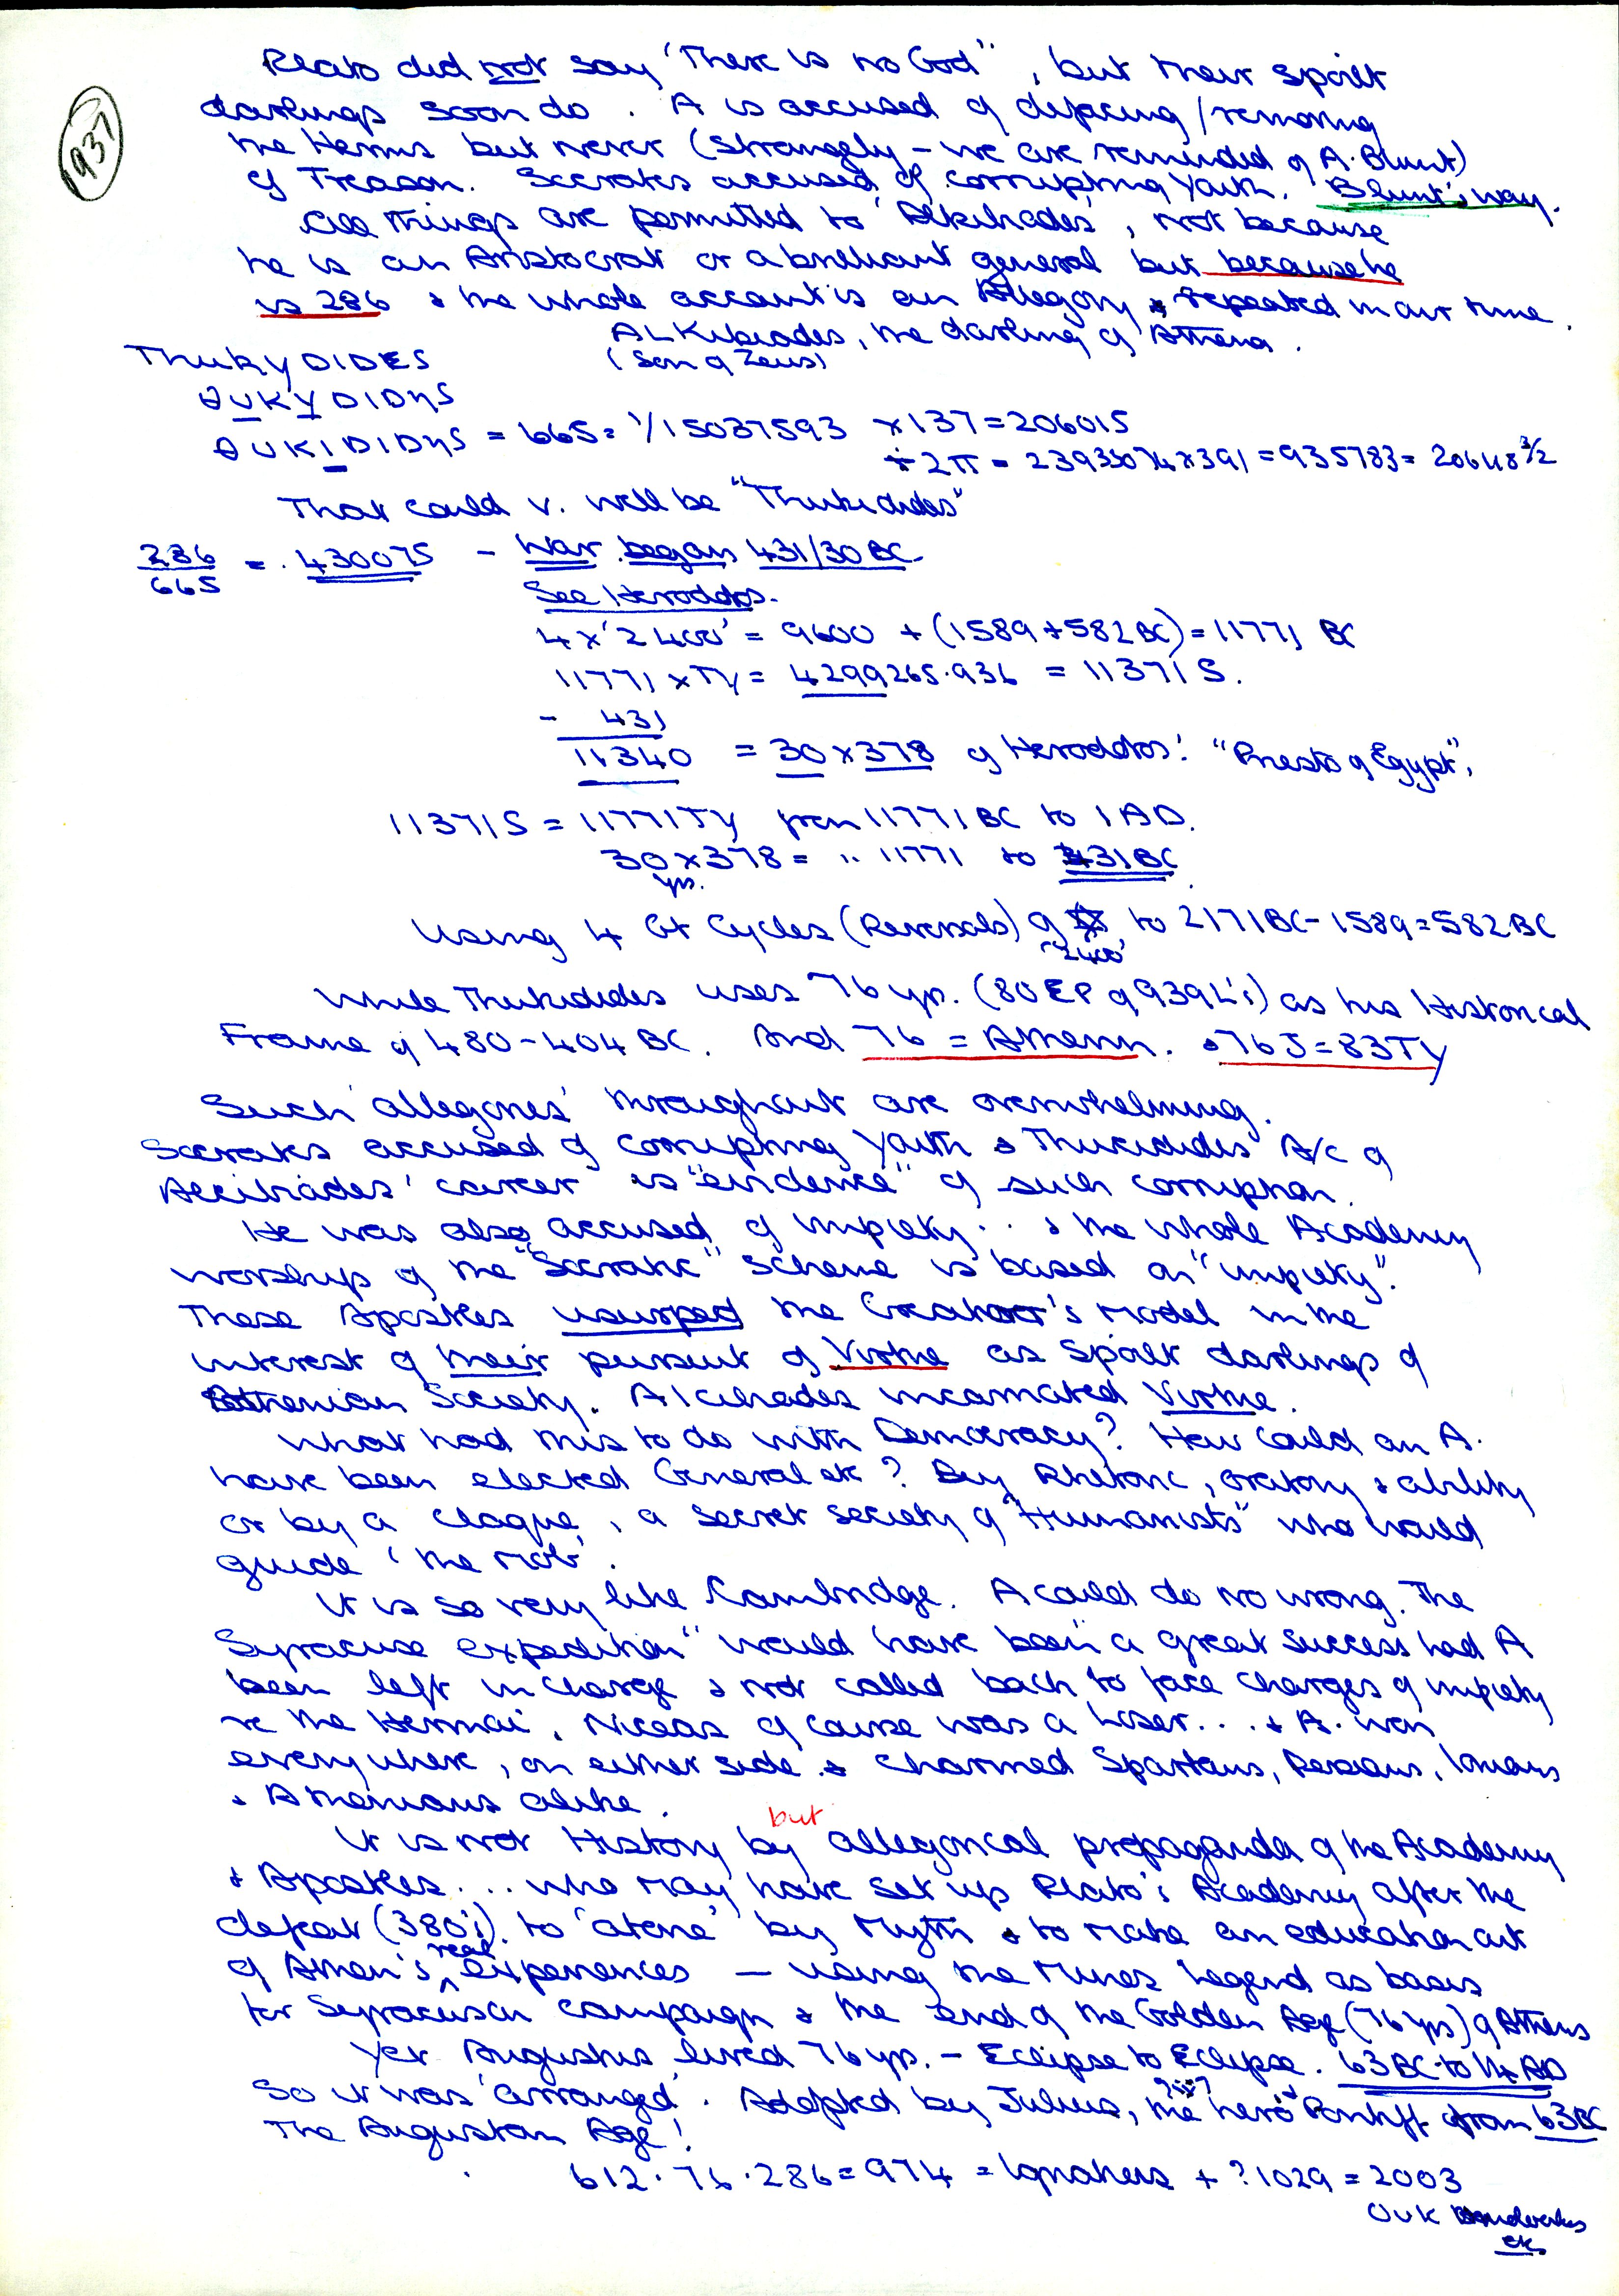 937
Plato did not say 'There is no God", but their spoilt
darlings soon do. A is accused of defacing/removing
the Herms but never (strangely - we are reminded of A. Blunt)
of Treason. Socrates accused of corrupting Youth. Blunt's way.
All things are permitted to 'Alkibiades', not because
he is an Aristocrat or a brilliant general but because he
is 286 & the whole account is an Allegory, & repeated in our time.
ALKibiades, the darling of Athena.
(Son of Zeus)
THUKYDIDES
θUKYDIDηS
θUKIDIDηS = 665 = 1/15037593 × 137 = 206015
÷ 2π = 23933074 × 391 = 935783 = 20648 3/2
That could v. well be "Thukidides"
286/665 = .430075 - War began 431/30 BC.
See Herodotos.
4 × '2400' = 9600 + (1589 + 582 BC) = 11771 BC
11771 × TY = 4299265.936 = 11371 S.
- 431
11340 = 30 × 378 of Herodotos' "Priests of Egypt",
11371 S = 11771 TY from 11771 BC to 1 AD.
30 × 378 = " 11771 to 431 BC
yrs.
Using 4 Gt Cycles (Reversals) of ✡ to 2171 BC - 1589 = 582 BC
'2400'
While Thukidides uses 76 yrs. (80 EP of 939 L's) as his Historical
Frame of 480 - 404 BC. And 76 = Athenn. & 76 J = 83 TY
Such 'allegories' throughout are overwhelming.
Socrates accused of corrupting Youth & Thucidides' A/c of
Alcibiades' career is "evidence" of such corruption.
He was also accused of impiety... & the whole Academy
worship of the "Socratic" scheme is based on "impiety".
These Apostles usurped the Creator's Model in the
interest of their pursuit of Virtue as spoilt darlings of
Athenian Society. Alcibiades incarnated Virtue.
What had this to do with Democracy? How could an A.
have been elected General etc? By Rhetoric, oratory & ability
or by a claque, a secret society of "Humanists" who would
guide 'the Mob'.
It is so very like Cambridge. A could do no wrong. The
Syracuse expedition "would have been" a great success had A
been left in charge & not called back to face charges of impiety
re the Hermai. Niceas of course was a loser... & A. won
everywhere, on either side & charmed Spartans, Persians, Ionians
& Athenians alike.
but
It is not History by allegorical propaganda of the Academy
& Apostles... who may have set up Plato's Academy after the
defeat (380's) to 'atone' by Myth & to make an education out
real
of Athen's ^ experiences - using the Minos legend as basis
for Syracusan campaign & the end of the Golden Age (76 yrs) of Athens
Yet Augustus lived 76 yrs. - Eclipse to Eclipse. 63 BC to 14 AD
So it was 'arranged'. Adopted by Julius, the hero & Pontiff from 63 BC
The Augustan Age!
612 . 76 . 286 = 974 = Ignatiers + ? 1029 = 2003
OUK
etc.